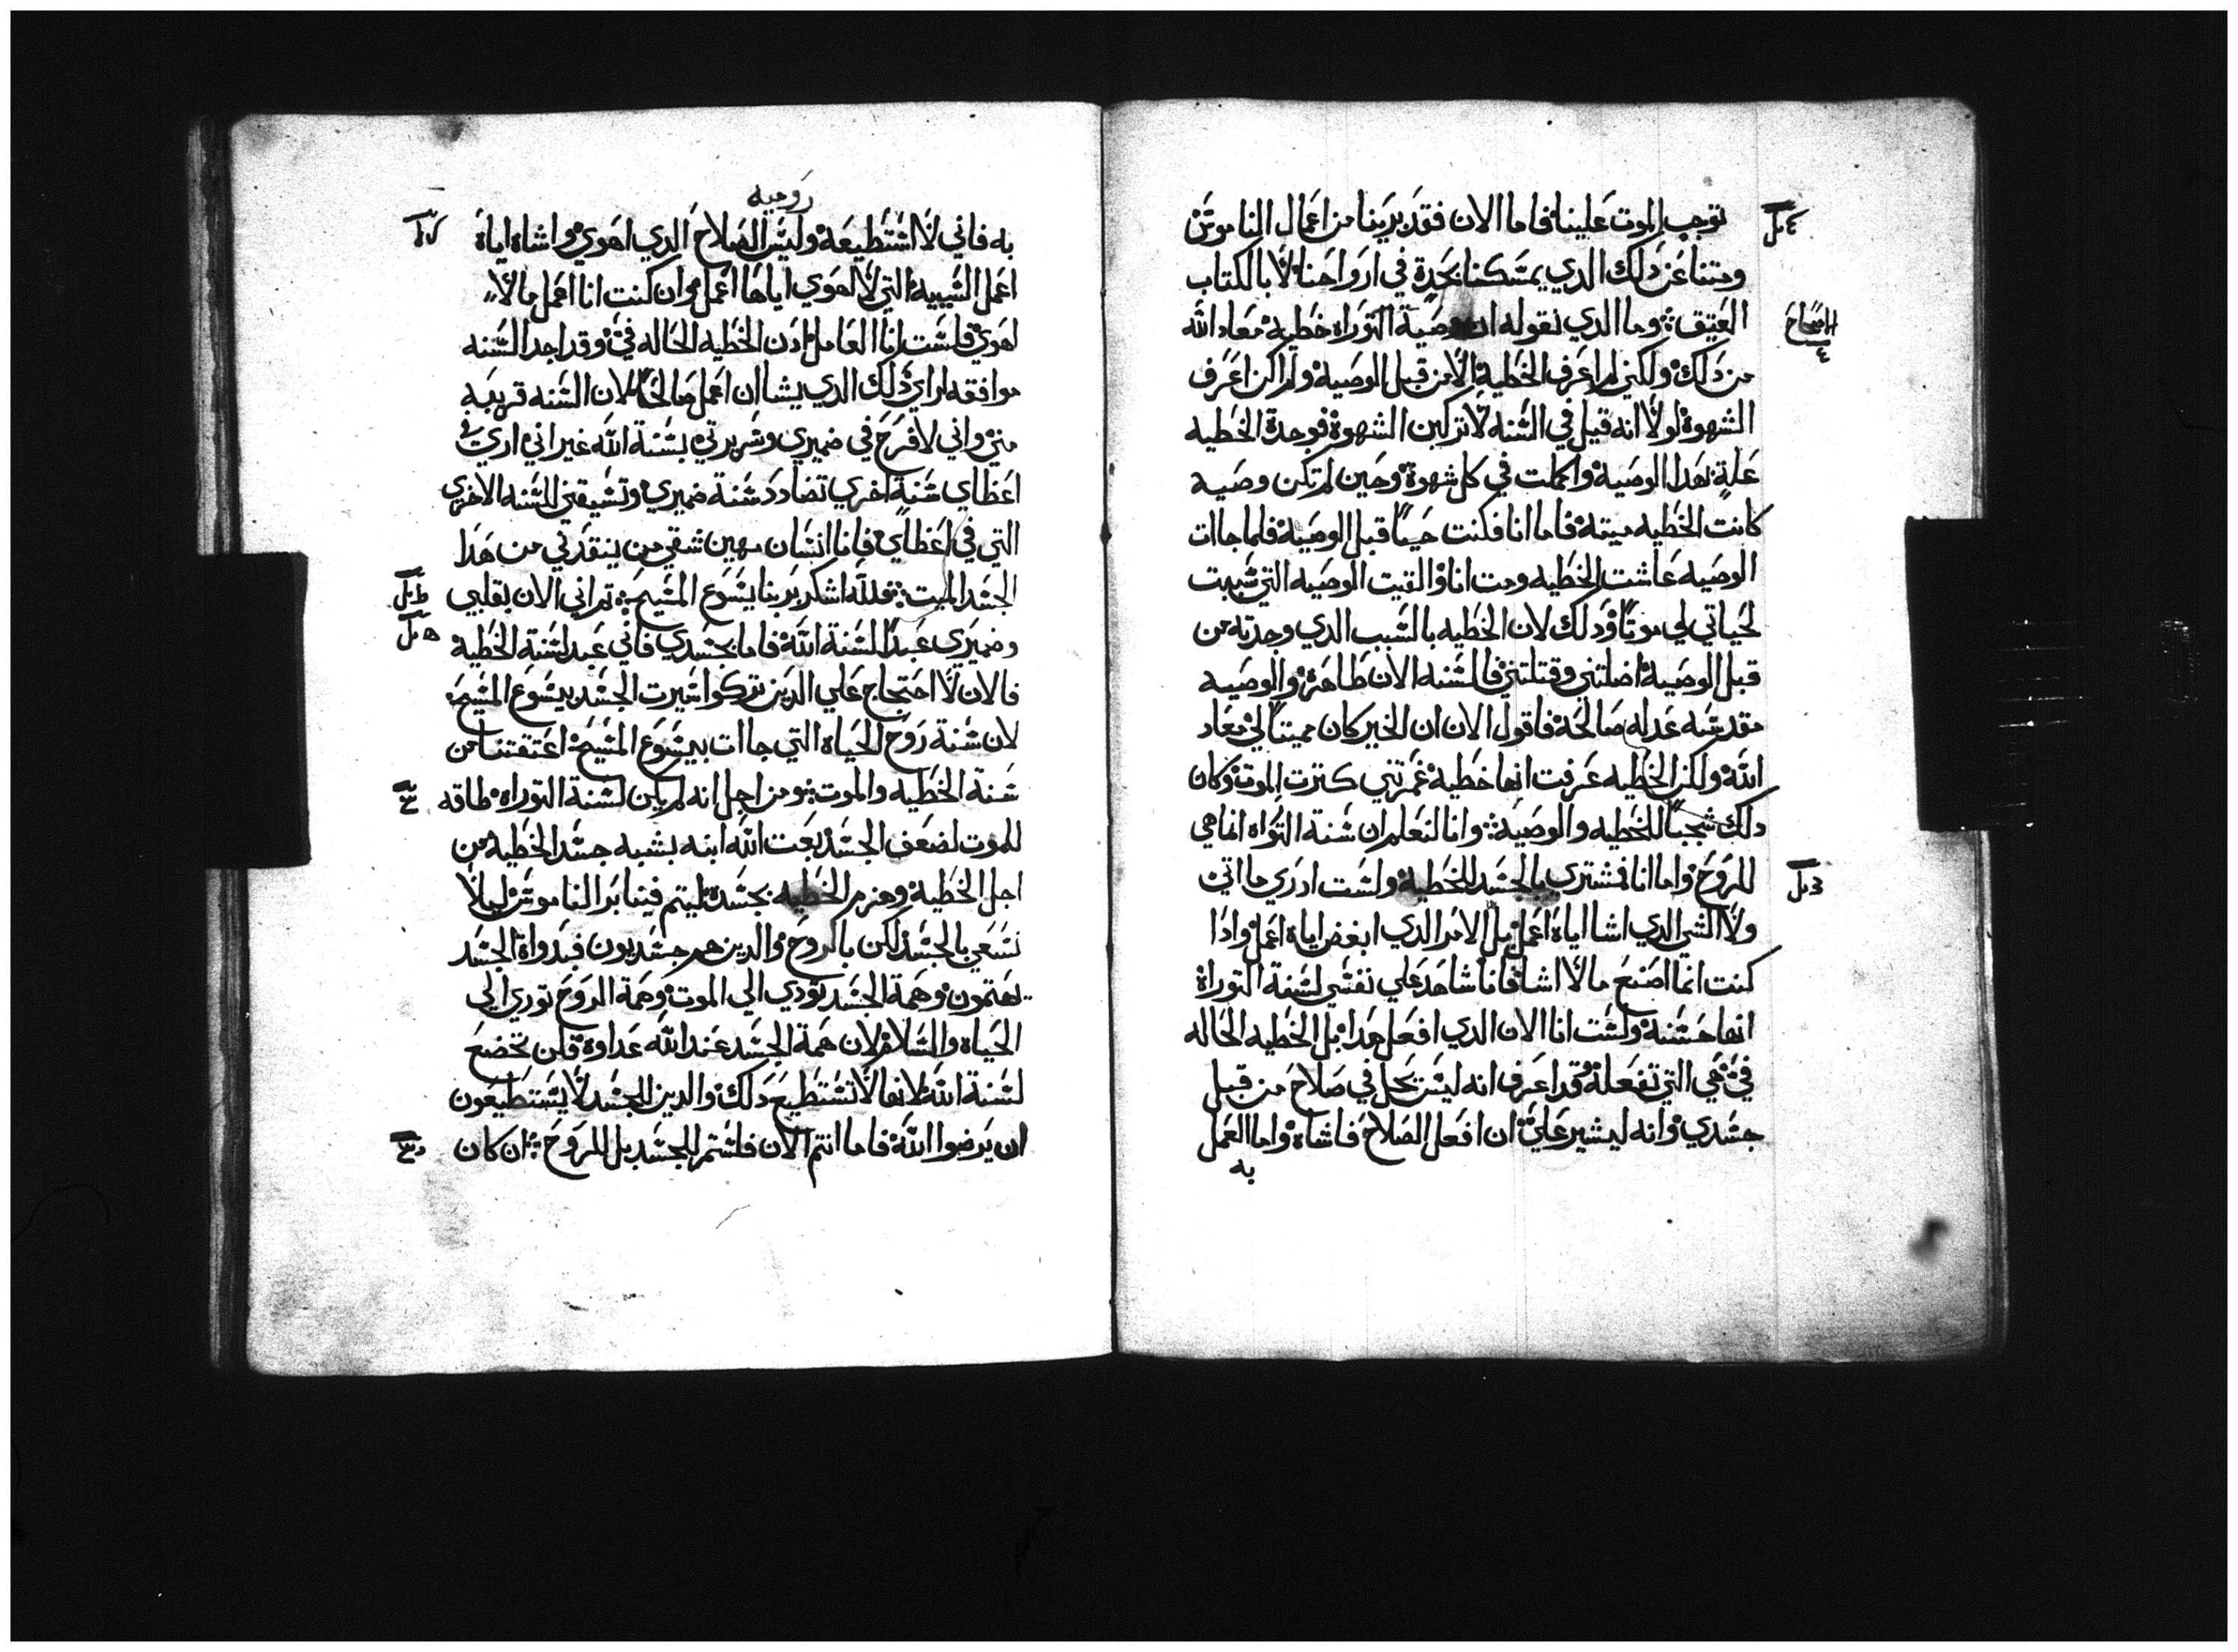 توجب الموت علينا فاما الان فقد برينا من اعمال الناموس
ومتنا عن ذلك الدي يمسكنا بجدة في ارواحنا لا بالكتاب
العتيق وما الدي نقوله ان وصية التوراه خطية معاد الله
من دلك ولكني لم اعرف الخطية الا من قبل الوصية ولم اكن اعرف
الشهوة لولا انه قيل في السنه لا تركبن الشهوة فوجدة الخطيه
علة لهدا الوصية واكملت في كل شهوة وحين لم تكن وصيه
كانت الخطيه ميته فاما انا فكنت حيا قبل الوصية فلما جاات
الوصيه عاشت الخطيه ومت انا والقيت الوصيه التي شبهت
لحياتي لي موتا ودلك لان الخطيه بالسبب الدي وجدته من
قبل الوصية اضلتني وقتلتني فالسنه الان طاهرة والوصيه
مقدسه عدله صالحة فاقول الان ان الخير كان مميتا لي معاد
الله ولكن الخطيه عرفت انها خطية غمرتني كترت الموت وكان
دلك شجبا للخطيه والوصية وانا لنعلم ان سنة التوراه انما هي
للروح واما انا فمشتري بالجسد للخطية ولست ادري ما اتي
ولا الشي الدي اشا اياه اعمل بل الامر الدي ابغض اياه اعمل وادا
كنت انما اصنع ما لا اشا فانا شاهد علي نفسي لسنة التوراة
انها حسنة ولست انا الان الدي افعل هدا بل الخطيه الحاله
في هي التي تفعله وقد اعرف انه ليس يحل في صلاح من قبل
جسدي وانه ليشير علي ان افعل الصلاح فاشاه واما العمل
به
اصحاح
٤
روميه
به فاني لا استطيعه وليس الصلاح الدي اهوي واشاه اياه
اعمل السييه التي لا اهوي اياها اعمل وان كنت انا اعمل ما لا
اهوي فلست انا العامل ادن الخطيه الحاله في وقد اجد السنه
موافقه لراي ذلك الدي يشا ان اعمل صالحا لان السنه قريبه
مني واني لافرح في ضميري وسريرتي بسنة الله غير اني اري في
اعظاي سنة اخري تضادد سنة ضميري وتسيقني للسنه الاخري
التي في اعظاي فانا انسان مهين شقي من ينقدني من هدا
الجسد الميت فلله اشكر بربنا يسوع المسيح تم اني الان بقلبي
وضميري عبدا لسنة الله فاما بجسدي فاني عبد لسنة الخطية
فالان لا احتجاج علي الدين تركوا سيرت الجسد بيسوع المسيح
لان سنة روح الحياه التي جاات بيسوع المسيح اعتقتنا من
سنة الخطيه والموت ومن اجل انه لم يكن لسنة التوراه طاقه
للموت لضعف الجسد بعت الله ابنه بشبه جسد الخطية من
اجل الخطية وهزم الخطيه بجسدة ليتم فينا بر الناموس ليلا
نسعي بالجسد لكن بالروح والدين هم جسديون فبدواة الجسد
يهتمون وهمة الجسد تودي الي الموت وهمة الروح تودي الي
الحياه والسلام لان همة الجسد عند الله عداوة فلن تخضع
لسنة الله لانها لا تستطيع دلك والدين للجسد لا يستطيعون
ان يرضوا الله فاما انتم الان فلستم للجسد بل للروح ان كان